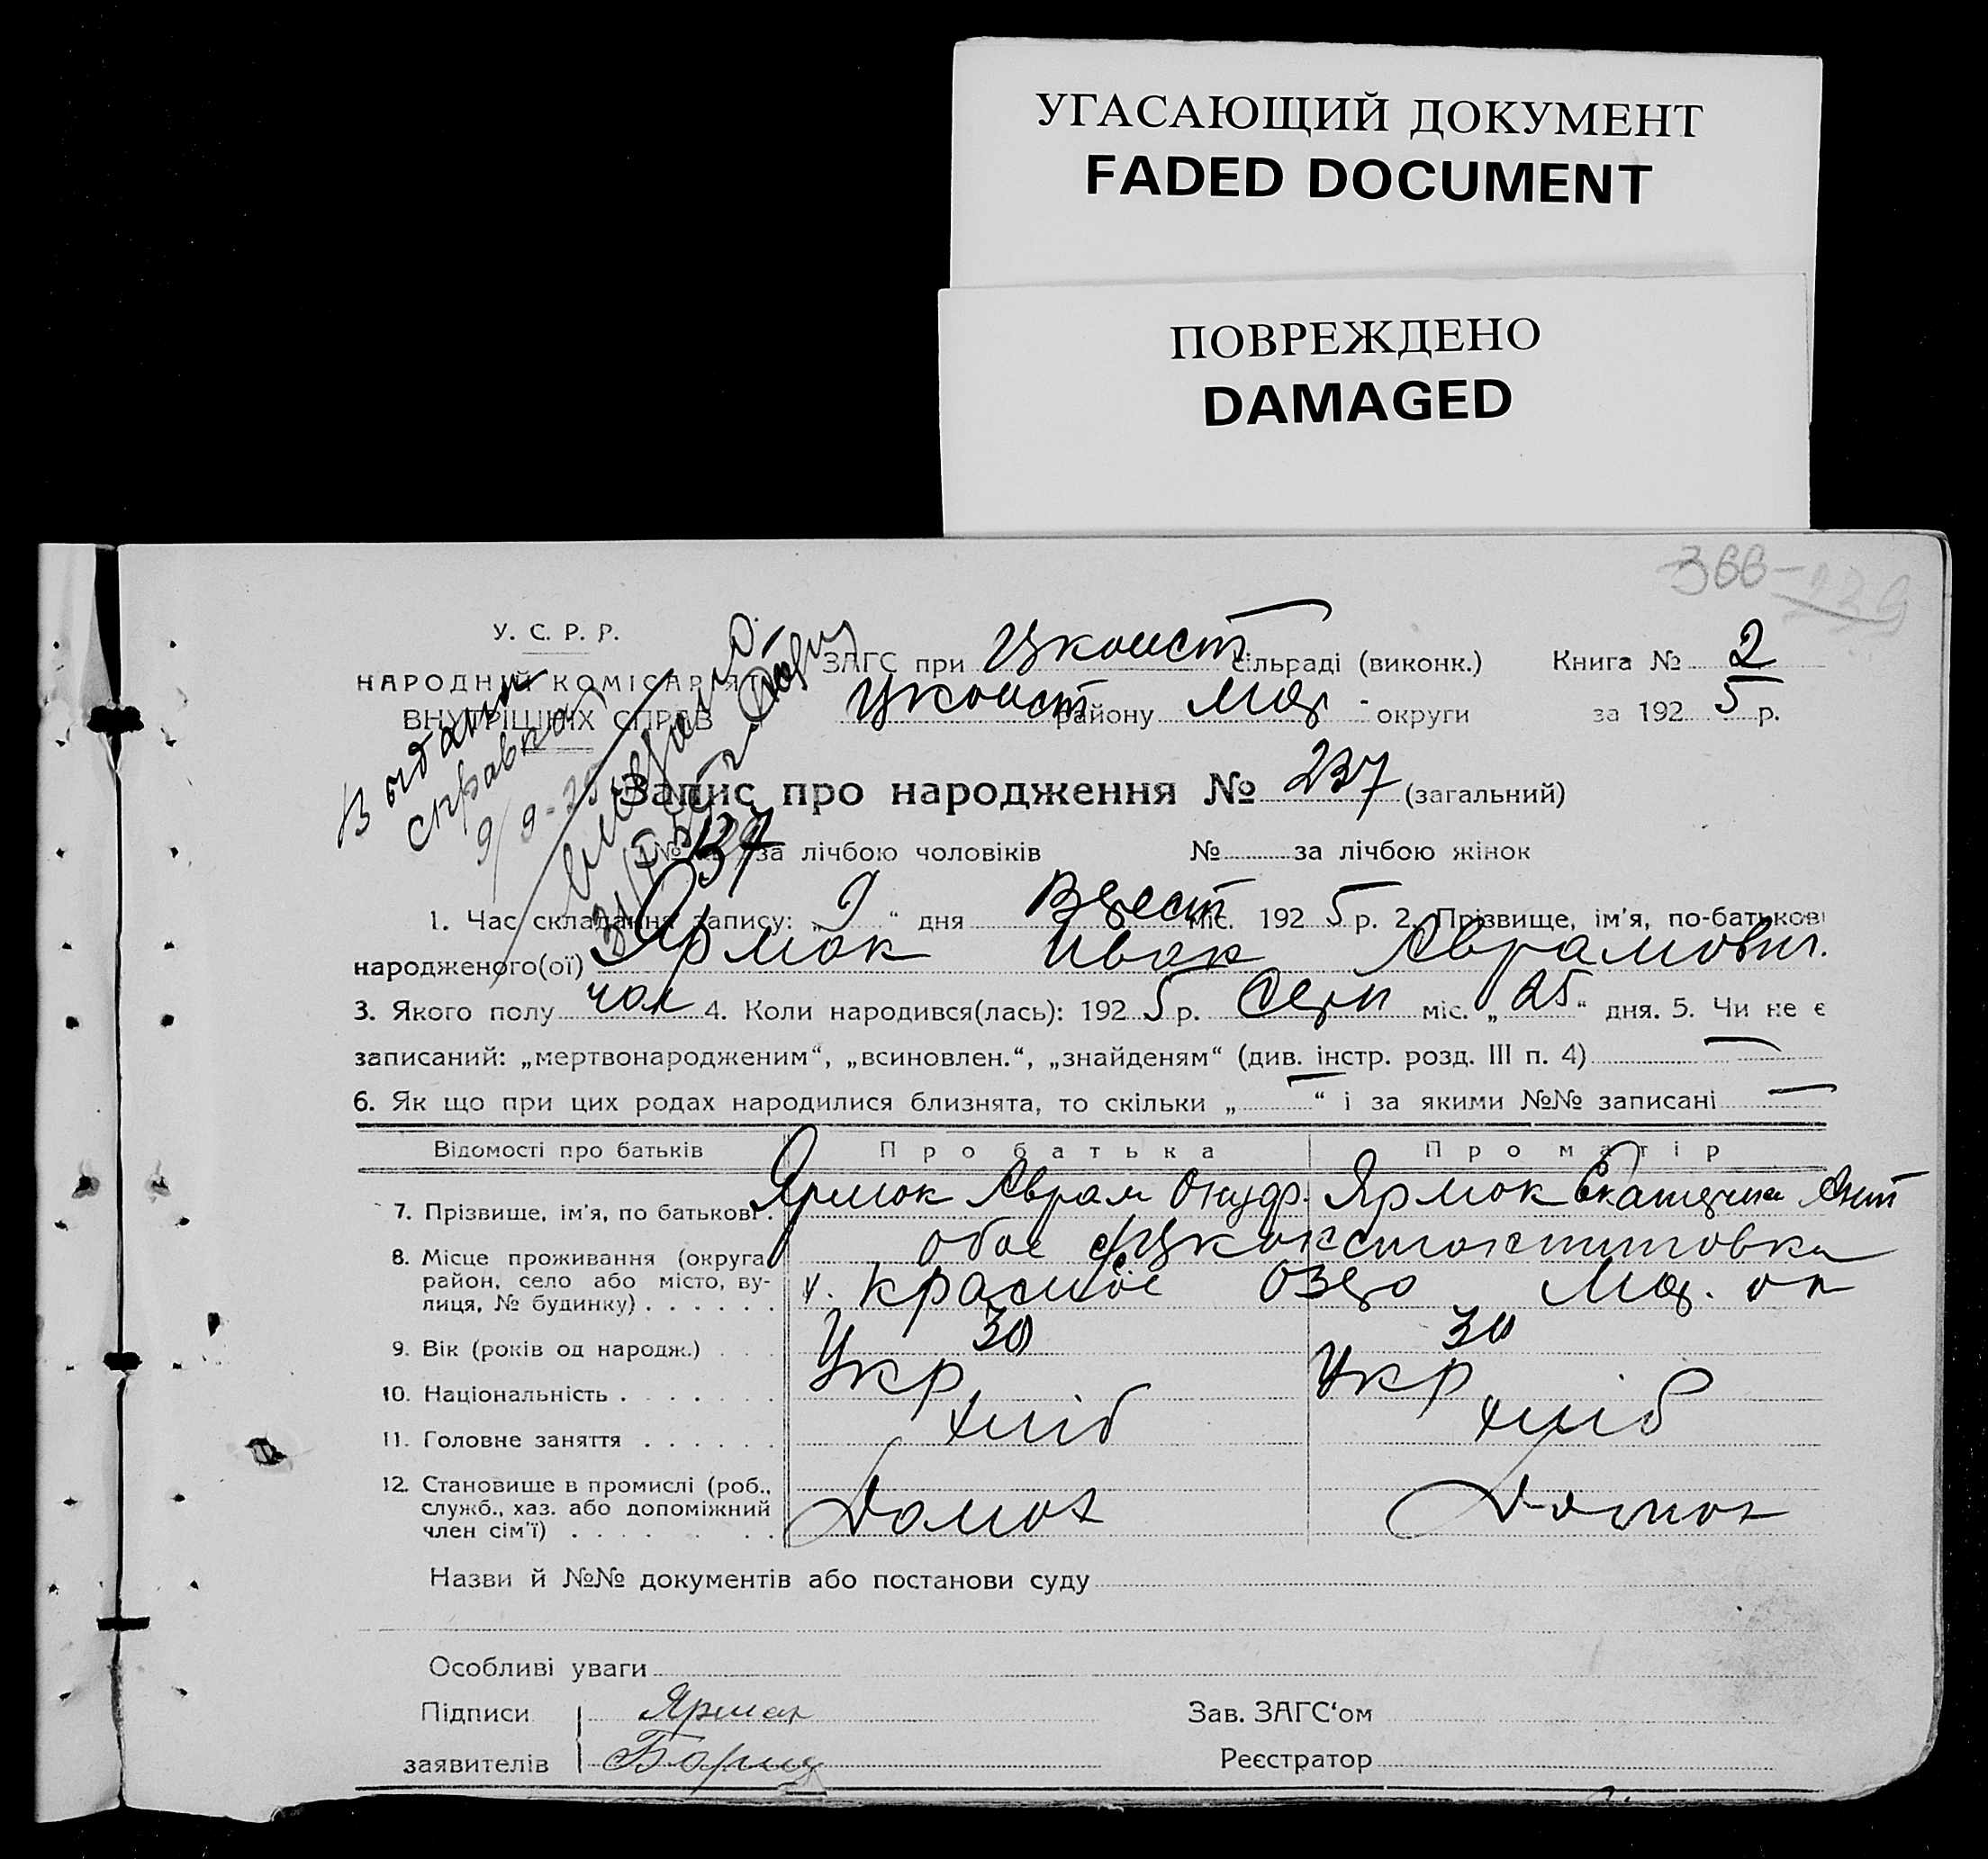 УГАСАЮЩИЙ ДОКУМЕНТ
FADED DOCUMENT
ПОВРЕЖДЕНО
DAMAGED
366-
У. С. Р. Р.
НАРОДНИЙ КОМІСАР'ЯТ
ВНУТРІШНІХ СПРАВ
Выдана
справка
9/9-
ЗАГС при Цконст сільраді (виконк.) Книга № 2
Цконст району Мар округи за 1925 р.
Запис про народження № 237 (загальний)
№ 137 за лічбою чоловіків № за лічбою жінок
1. Час складання запису: „ 9 “ дня Верест міс. 1925 р. 2. Прізвище, ім'я, по-батькові
народженого(ої) Ярмак Иван Аврамович.
3. Якого полу чол 4. Коли народився(лась): 1925 р. Серп міс. „ 25 “ дня. 5. Чи не є
записаний: „мертвонародженим“, „всиновлен.“, „знайденям“ (див. інстр. розд. III п. 4) —
6. Як що при цих родах народилися близнята, то скільки „ — “ і за якими №№ записані —
Відомості про батьків Про батька Про матір
7. Прізвище, ім'я, по батькові . Ярмак Аврам Онуфр. Ярмак Екатерина Ант
8. Місце проживання (округа, район, село або місто, вулиця, № будинку) . . . . . . обое
Красное Озеро Мар. ок
9. Вік (років од народж.) . . . 30 30
10. Національність . . . . . . . Укр Укр
11. Головне заняття . . . . . . хліб хліб
12. Становище в промислі (роб., служб., хаз. або допоміжний член сім'ї) . . . . . . Домох Домох
Назви й №№ документів або постанови суду
Особливі уваги
Підписи Ярмак Зав. ЗАГС'ом
заявителів Реєстратор